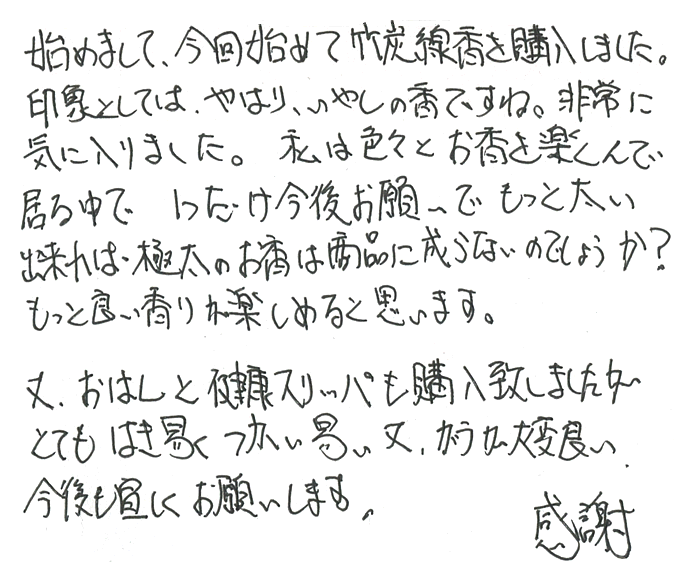 始めまして、今回始めて竹炭線香を購入しました。
印象としては、やはり、いやしの香ですね。非常に
気に入りました。私は色々とお香を楽しんで
居る中で 1つだけ今後お願いで もっと太い
出来れば極太のお香は商品に成らないのでしょうか?
もっと良い香りが楽しめると思います。
又、おはしと健康スリッパも購入致しましたが
とてもはき易く つかい易い 又、がらが大変良い、
今後も宜しくお願いします。
感謝